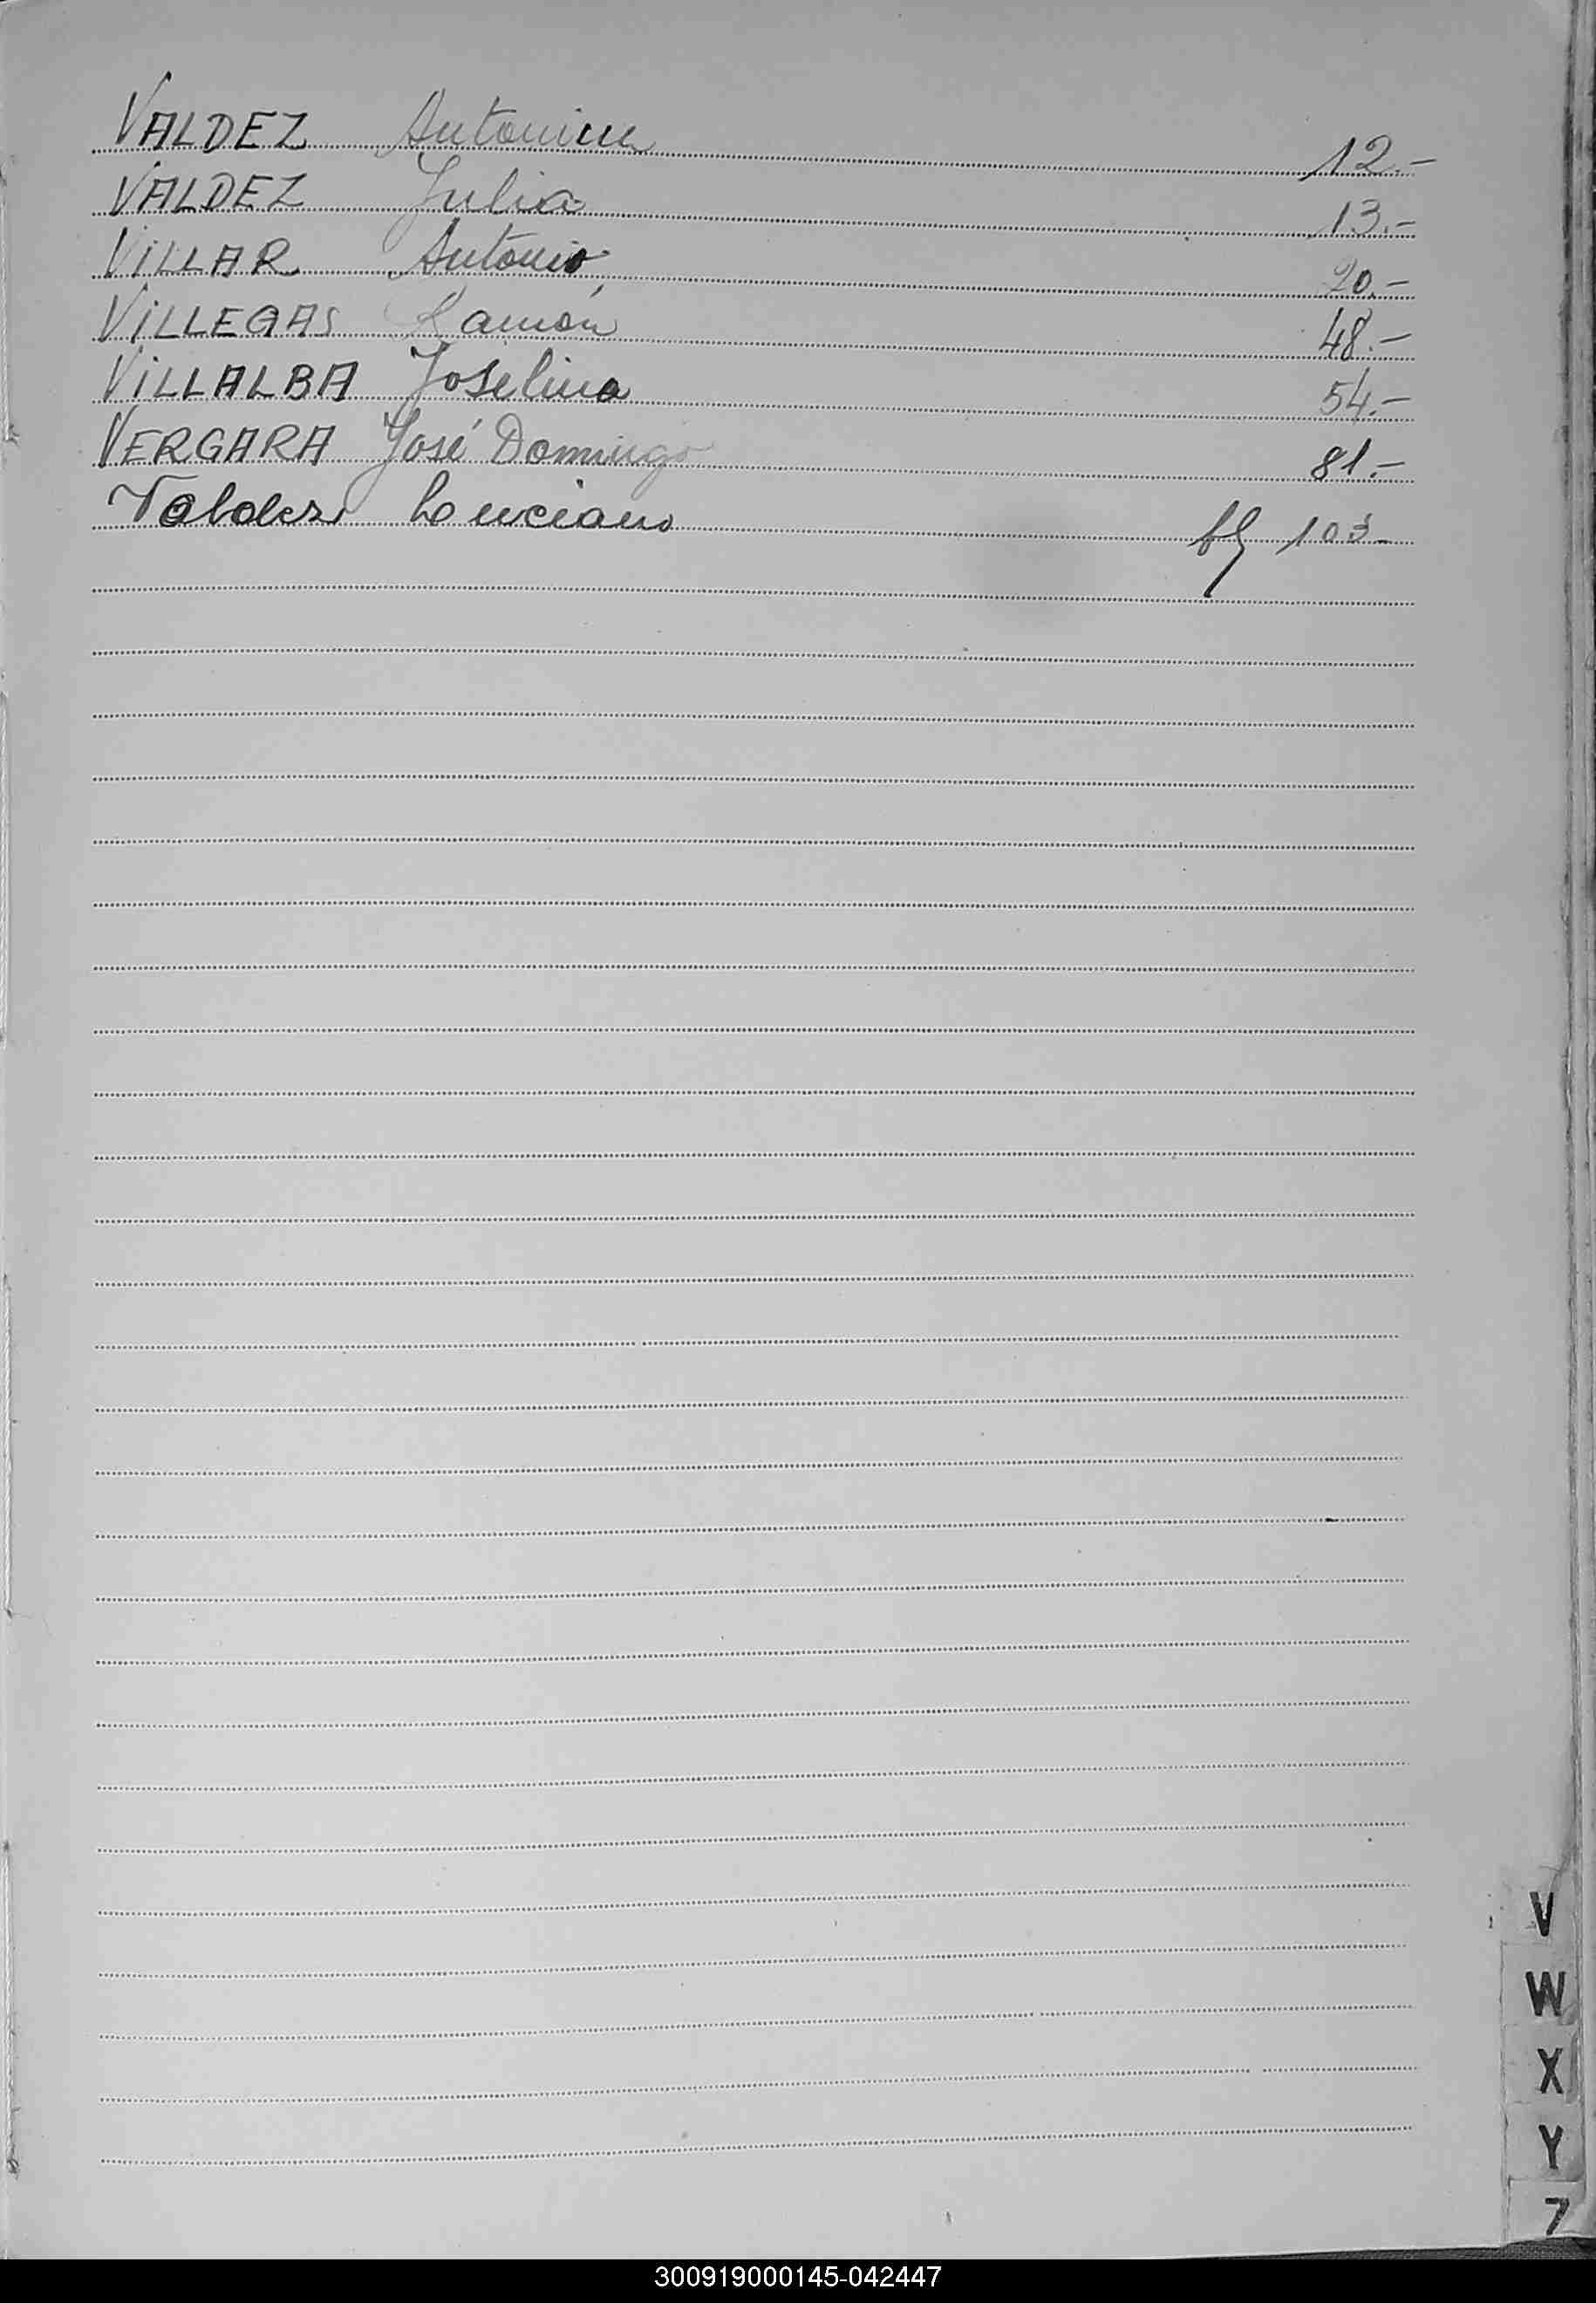 VALDEZ Antonina 12.-
VALDEZ Julia 13.-
VILLAR Antonio 20.-
VILLEGAS Ramón 48.-
VILLALBA Joselina 54.-
VERGARA José Domingo 81.-
Valdez Luciano fs 103-
V
W
X
Y
Z
300919000145-042447